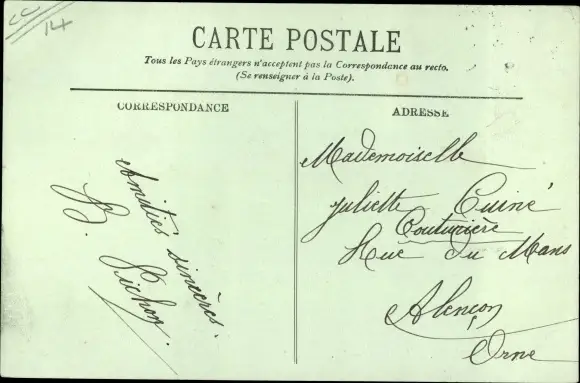 CC
14
CARTE POSTALE
Tous les Pays étrangers n'acceptent pas la Correspondance au recto.
(Se renseigner à la Poste).
CORRESPONDANCE
Amitiés sincères.
B. Pichon.
ADRESSE
Mademoiselle
Juliette Cuiné
Couturière
Rue du Mans
Alençon
Orne